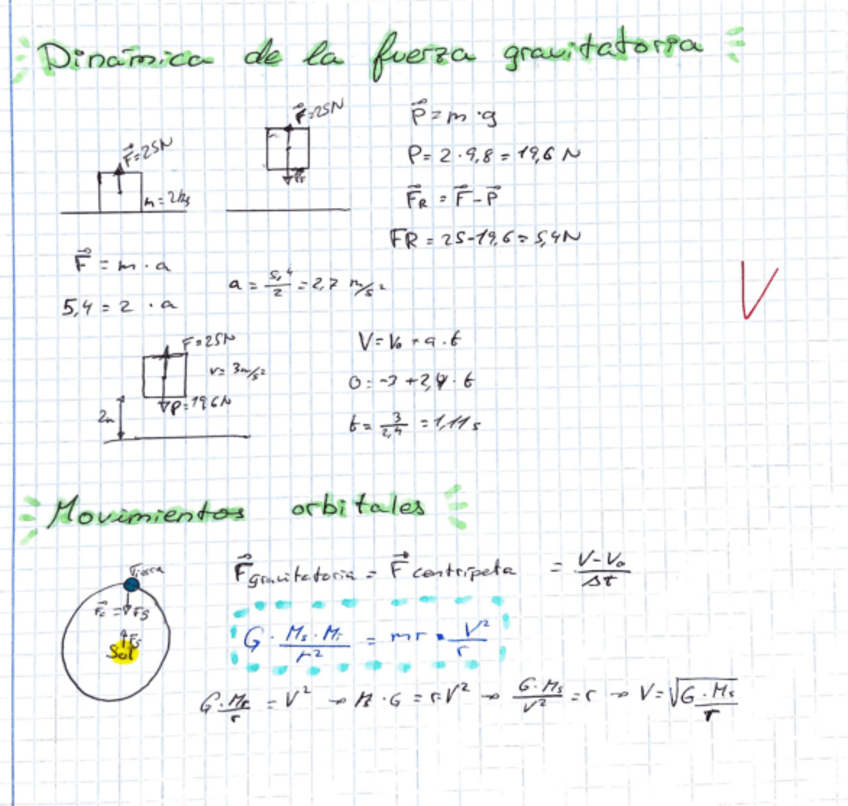 Dinámica de la fuerza gravitatoria
F⃗=25N
m=2kg
F⃗=25N
P⃗=m·g
P=2·9,8=19,6 N
F⃗R = F⃗-P⃗
FR = 25-19,6=5,4N
F⃗ = m·a
5,4=2·a
a = 5,4/2 = 2,7 m/s²
F=25N
v=3m/s²
P=19,6N
2m
V=V₀+a·t
0=-3+2,7·t
t= 3/2,7 =1,11s
V
Movimientos orbitales
Tierra
F⃗c = Fg
Fg
Sol
F⃗gravitatoria = F⃗centrípeta = V-V₀/Δt
G· Ms·MT/r² = mT· V²/r
G·Ms/r = V² → M·G=r·V² → G·Ms/V² = r → V=√G·Ms/r